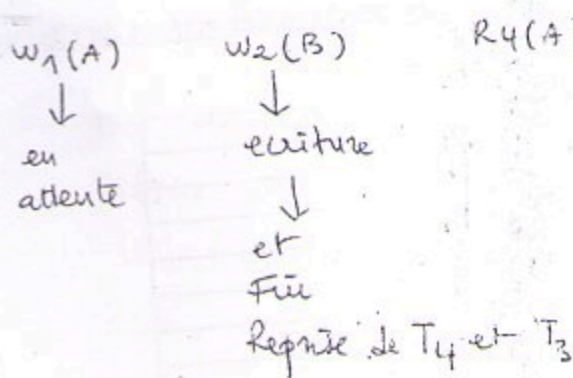 W1(A)
↓
en
attente
W2(B)
↓
ecriture
↓
et
Fin
Reprise de T4 et T3
R4(A